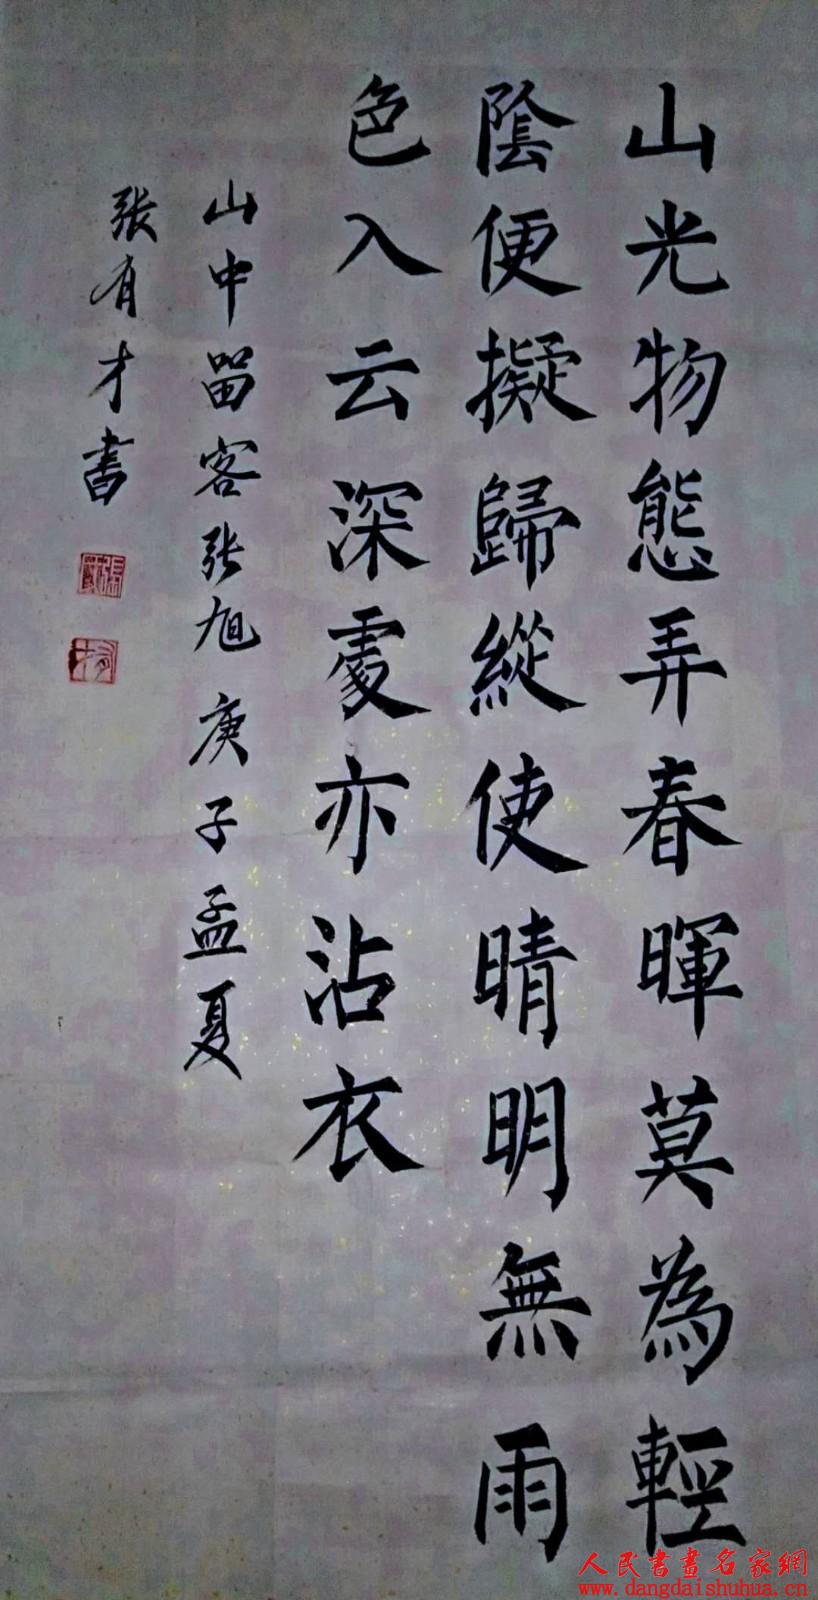 山光物態弄春暉莫為輕
陰便擬歸縱使晴明無雨
色入云深處亦沾衣
山中留客张旭庚子孟夏
张有才書
人民書畫名家網
www.dangdaishuhua.com